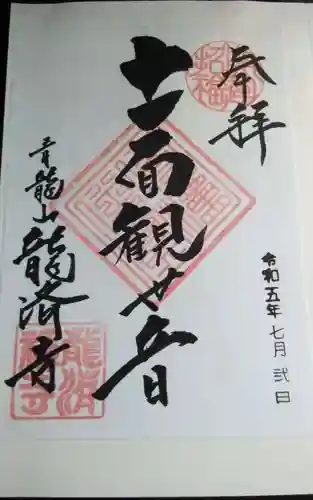 奉拝
令和五年 七月 弐日
十一面観世音
青龍山 龍済寺